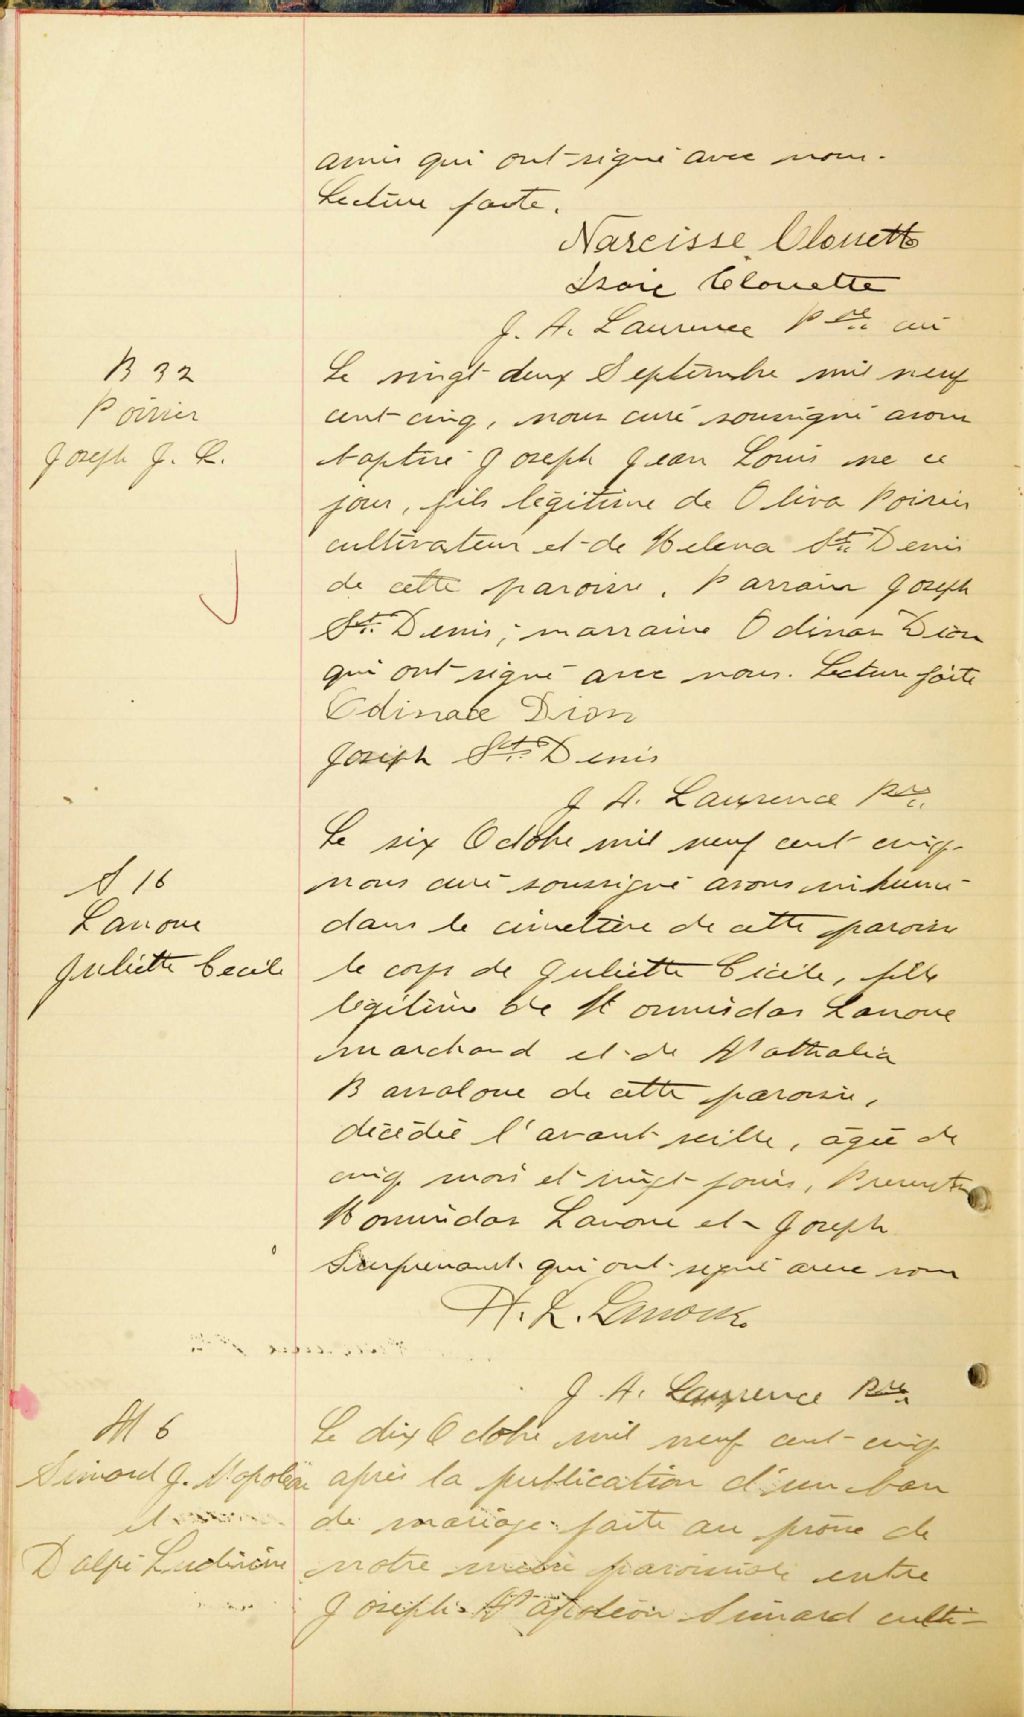 amis qui ont signé avec nous.
Lecture faite.
Narcisse Clouette
Isaïe Clouette
J. A. Laurence Ptre curé
B 32
Poirier
Joseph J. L.
Le vingt deux Septembre mil neuf
cent cinq, nous curé soussigné avons
baptisé Joseph Jean Louis né ce
jour, fils légitime de Oliva Poirier
cultivateur et de Helena St. Denis
de cette paroisse. Parrain Joseph
St. Denis; marraine Odinas Dion
qui ont signé avec nous. Lecture faite
Odinace Dion
Joseph St. Denis
J. A. Laurence Ptre
S 16
Lanoue
Juliette Cecile
Le six Octobre mil neuf cent cinq
nous curé soussigné avons inhumé
dans le cimetière de cette paroisse
le corps de Juliette Cécile, fille
légitime de Hormisdas Lanoue
marchand et de Nathalia
Barsaloue de cette paroisse,
décédée l'avant veille, agée de
cinq mois et vingt jours, Présents
Hormisdas Lanoue et Joseph
Surprenant qui ont signé avec nous
H. L. Lanoue
J. A. Laurence Ptre
M 6
Simard J. Napoléon
et
Dalpé Ludivine
Le dix Octobre mil neuf cent cinq
après la publication d'un ban
de mariage faite au prône de
notre messe paroissiale entre
Joseph Napoléon Simard culti-